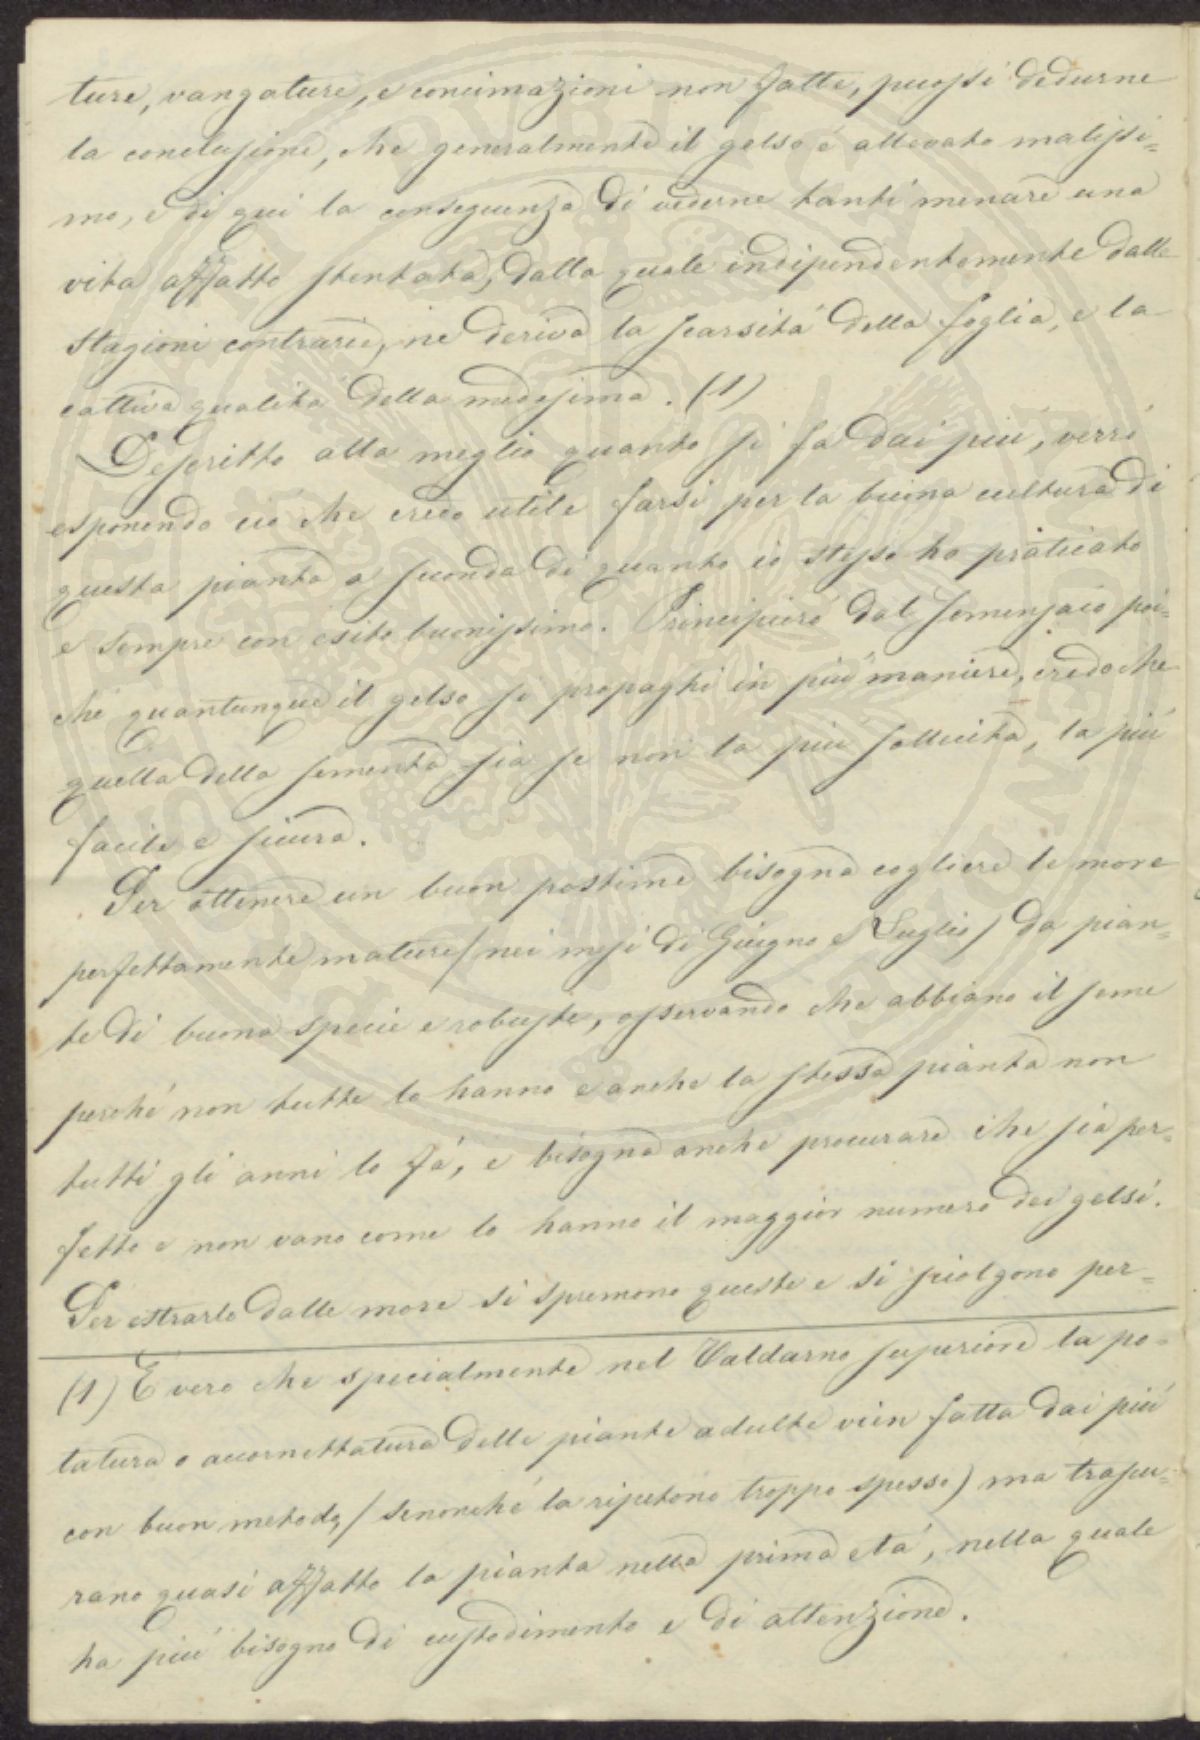 ture, vangature, e concimazioni non fatte, puossi dedurne
la conclusione, che generalmente il gelso é allevato malissi=
mo, e di qui la conseguenza di vederne tanti menare una
vita affatto stentata, dalla quale indipendentemente dalle
stagioni contrarie, ne deriva la scarsitá della foglia, e la
cattiva qualitá della medesima. (1)
Descritto alla meglio quanto si fa dai piú, verró
esponendo ció che credo utile farsi per la buona cultura di
questa pianta a seconda di quanto io stesso ho praticato
e sempre con esito buonissimo. Principieró dal semenzaio poi=
ché quantunque il gelso si propaghi in piú maniere, credo che
quella della sementa sia se non la piú sollecita, la piú
facile e sicura.
Per ottenere un buon postime bisogna cogliere le more
perfettamente mature (nei mesi di Giugno e Luglio) da pian=
te di buona specie e robuste, osservando che abbiano il seme
perché non tutte lo hanno e anche la stessa pianta non
tutti gli anni lo fá, e bisogna anche procurare che sia per=
fetto e non vano come lo hanno il maggior numero dei gelsi.
Per estrarlo dalle more si spremono queste e si sciolgono per=
(1) É vero che specialmente nel Valdarno superiore la po=
tatura o accornettatura delle piante adulte vien fatta dai piú
con buon metodo, (senonché la ripetono troppo spesso) ma trascu=
rano quasi affatto la pianta nella prima etá, nella quale
ha piú bisogno di custodimento e di attenzione.